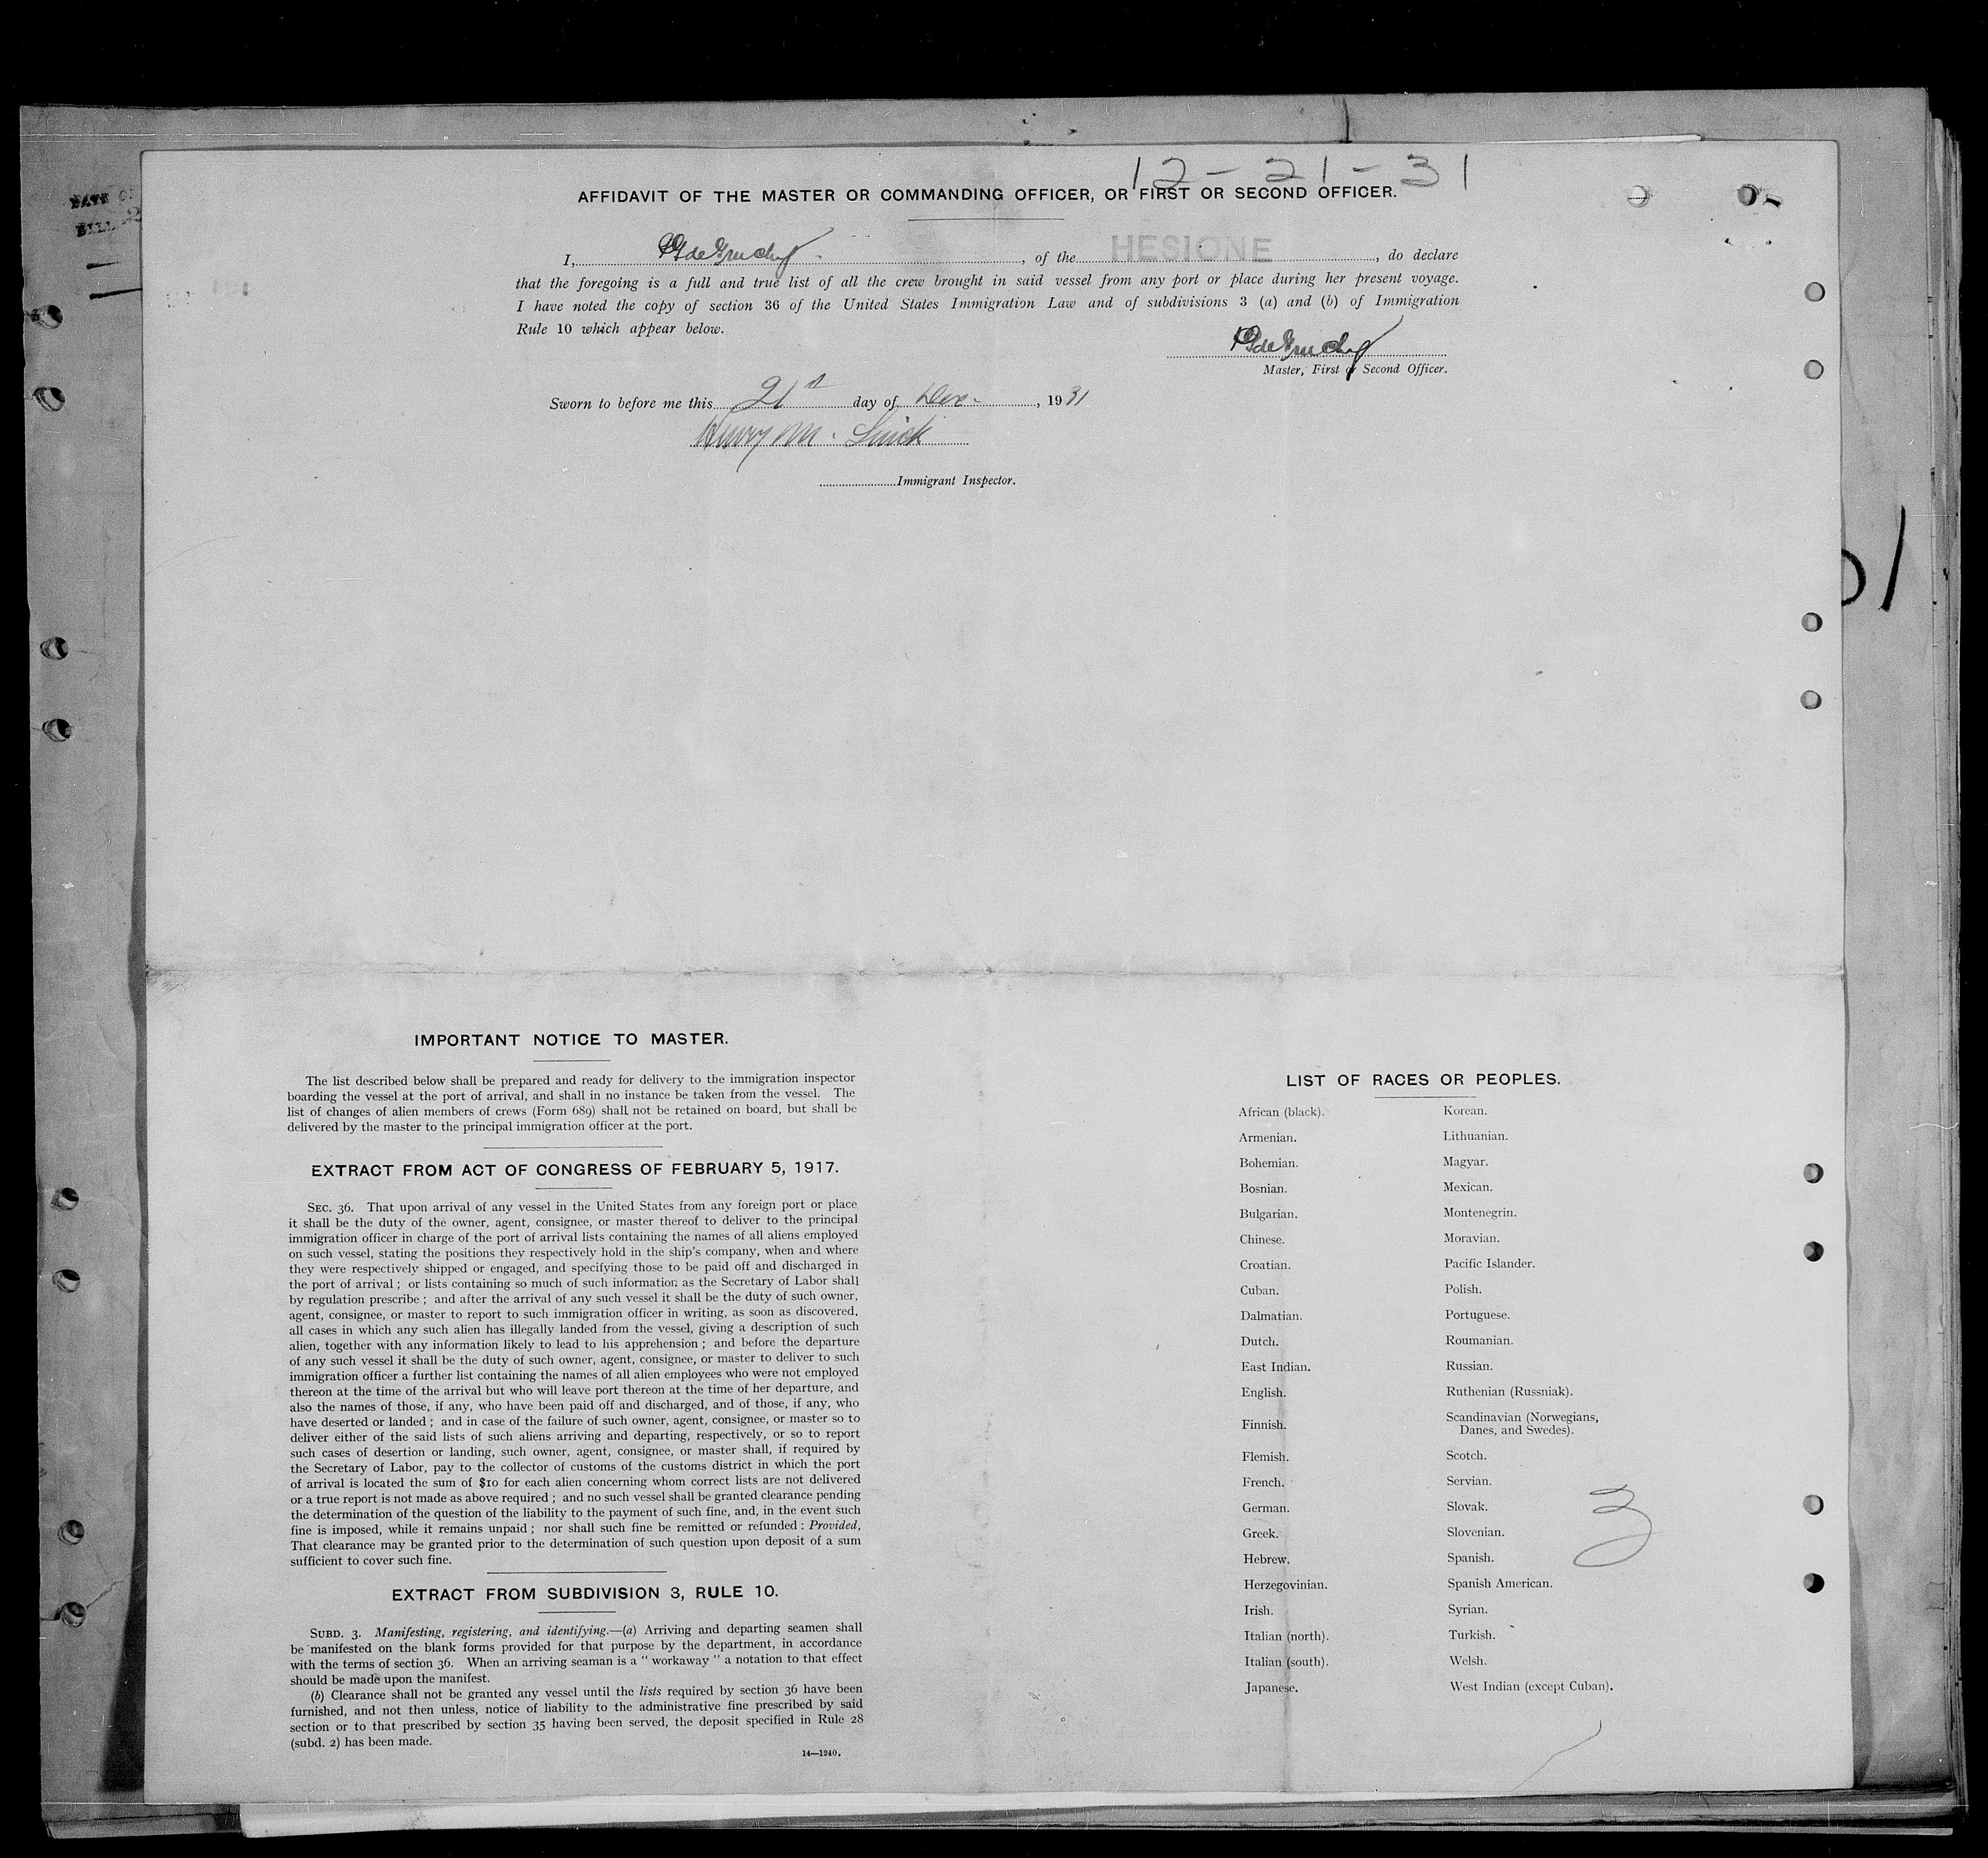 12-21-31
AFFIDAVIT OF THE MASTER OR COMMANDING OFFICER, OR FIRST OR SECOND OFFICER.
I, PG de Gruchy, of the HESIONE, do declare
that the foregoing is a full and true list of all the crew brought in said vessel from any port or place during her present voyage.
I have noted the copy of section 36 of the United States Immigration Law and of subdivisions 3 (a) and (b) of Immigration
Rule 10 which appear below.
PG de Gruchy
Master, First or Second Officer.
Sworn to before me this 21st day of Dec., 1931
Henry M.
Immigrant Inspector.
IMPORTANT NOTICE TO MASTER.
The list described below shall be prepared and ready for delivery to the immigration inspector
boarding the vessel at the port of arrival, and shall in no instance be taken from the vessel. The
list of changes of alien members of crews (Form 689) shall not be retained on board, but shall be
delivered by the master to the principal immigration officer at the port.
EXTRACT FROM ACT OF CONGRESS OF FEBRUARY 5, 1917.
SEC. 36. That upon arrival of any vessel in the United States from any foreign port or place
it shall be the duty of the owner, agent, consignee, or master thereof to deliver to the principal
immigration officer in charge of the port of arrival lists containing the names of all aliens employed
on such vessel, stating the positions they respectively hold in the ship's company, when and where
they were respectively shipped or engaged, and specifying those to be paid off and discharged in
the port of arrival; or lists containing so much of such information as the Secretary of Labor shall
by regulation prescribe; and after the arrival of any such vessel it shall be the duty of such owner,
agent, consignee, or master to report to such immigration officer in writing, as soon as discovered,
all cases in which any such alien has illegally landed from the vessel, giving a description of such
alien, together with any information likely to lead to his apprehension; and before the departure
of any such vessel it shall be the duty of such owner, agent, consignee, or master to deliver to such
immigration officer a further list containing the names of all alien employees who were not employed
thereon at the time of the arrival but who will leave port thereon at the time of her departure, and
also the names of those, if any, who have been paid off and discharged, and of those, if any, who
have deserted or landed; and in case of the failure of such owner, agent, consignee, or master so to
deliver either of the said lists of such aliens arriving and departing, respectively, or so to report
such cases of desertion or landing, such owner, agent, consignee, or master shall, if required by
the Secretary of Labor, pay to the collector of customs of the customs district in which the port
of arrival is located the sum of $10 for each alien concerning whom correct lists are not delivered
or a true report is not made as above required; and no such vessel shall be granted clearance pending
the determination of the question of the liability to the payment of such fine, and, in the event such
fine is imposed, while it remains unpaid; nor shall such fine be remitted or refunded: Provided,
That clearance may be granted prior to the determination of such question upon deposit of a sum
sufficient to cover such fine.
EXTRACT FROM SUBDIVISION 3, RULE 10.
SUBD. 3. Manifesting, registering, and identifying.—(a) Arriving and departing seamen shall
be manifested on the blank forms provided for that purpose by the department, in accordance
with the terms of section 36. When an arriving seaman is a "workaway" a notation to that effect
should be made upon the manifest.
(b) Clearance shall not be granted any vessel until the lists required by section 36 have been
furnished, and not then unless, notice of liability to the administrative fine prescribed by said
section or to that prescribed by section 35 having been served, the deposit specified in Rule 28
(subd. 2) has been made.
14—1240.
LIST OF RACES OR PEOPLES.
African (black).
Armenian.
Bohemian.
Bosnian.
Bulgarian.
Chinese.
Croatian.
Cuban.
Dalmatian.
Dutch.
East Indian.
English.
Finnish.
Flemish.
French.
German.
Greek.
Hebrew.
Herzegovinian.
Irish.
Italian (north).
Italian (south).
Japanese.
Korean.
Lithuanian.
Magyar.
Mexican.
Montenegrin.
Moravian.
Pacific Islander.
Polish.
Portuguese.
Roumanian.
Russian.
Ruthenian (Russniak).
Scandinavian (Norwegians,
Danes, and Swedes).
Scotch.
Servian.
Slovak.
Slovenian.
Spanish.
Spanish American.
Syrian.
Turkish.
Welsh.
West Indian (except Cuban).
3